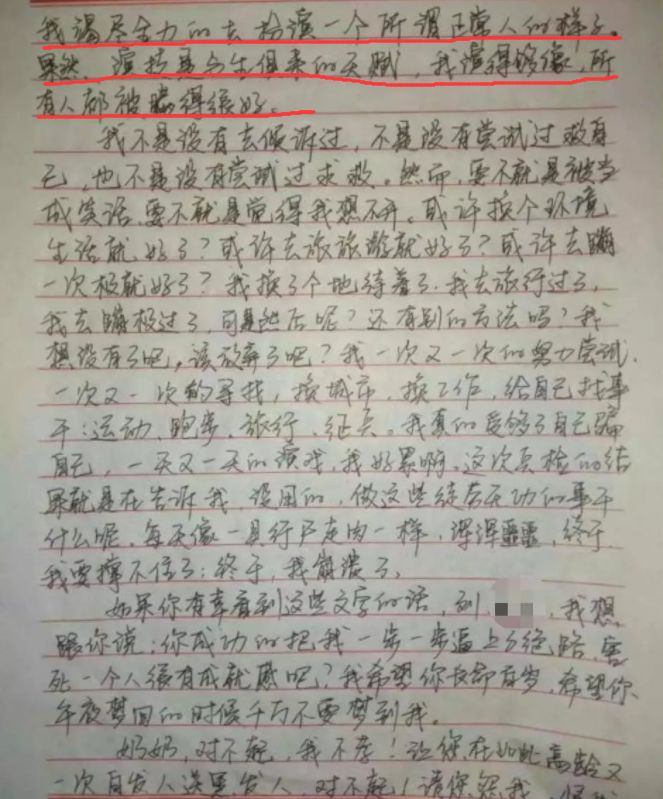 我竭尽全力的去扮演一个所谓正常人的样子。
果然，演技是与生俱来的天赋，我演得够像，所
有人都被骗得很好。
我不是没有去倾诉过，不是没有尝试过救自
己，也不是没有尝试过求救。然而，要不就是被当
成笑话，要不就是觉得我想不开。或许换个环境
生活就好了？或许去旅旅游就好了？或许去蹦
一次极就好了？我换了个地待着了，我去旅行过了，
我去蹦极过了，可是然后呢？还有别的方法吗？我
想没有了吧，该放弃了吧？我一次又一次的努力尝试，
一次又一次的寻找，换城市、换工作，给自己找事
干：运动、跑步、旅行、征兵。我真的受够了自己骗
自己，一天又一天的演戏，我好累啊。这次复检的结
果就是在告诉我，没用的，做这些徒劳无功的事干
什么呢。每天像一具行尸走肉一样，浑浑噩噩，终于，
我要撑不住了；终于，我崩溃了。
如果你有幸看到这些文字的话，刘 ，我想
跟你说：你成功的把我一步一步逼上了绝路，害
死一个人很有成就感吧？我希望你长命百岁，希望你
午夜梦回的时候千万不要梦到我。
奶奶，对不起，我不孝！让您在如此高龄又
一次白发人送黑发人，对不起！请您怨我，